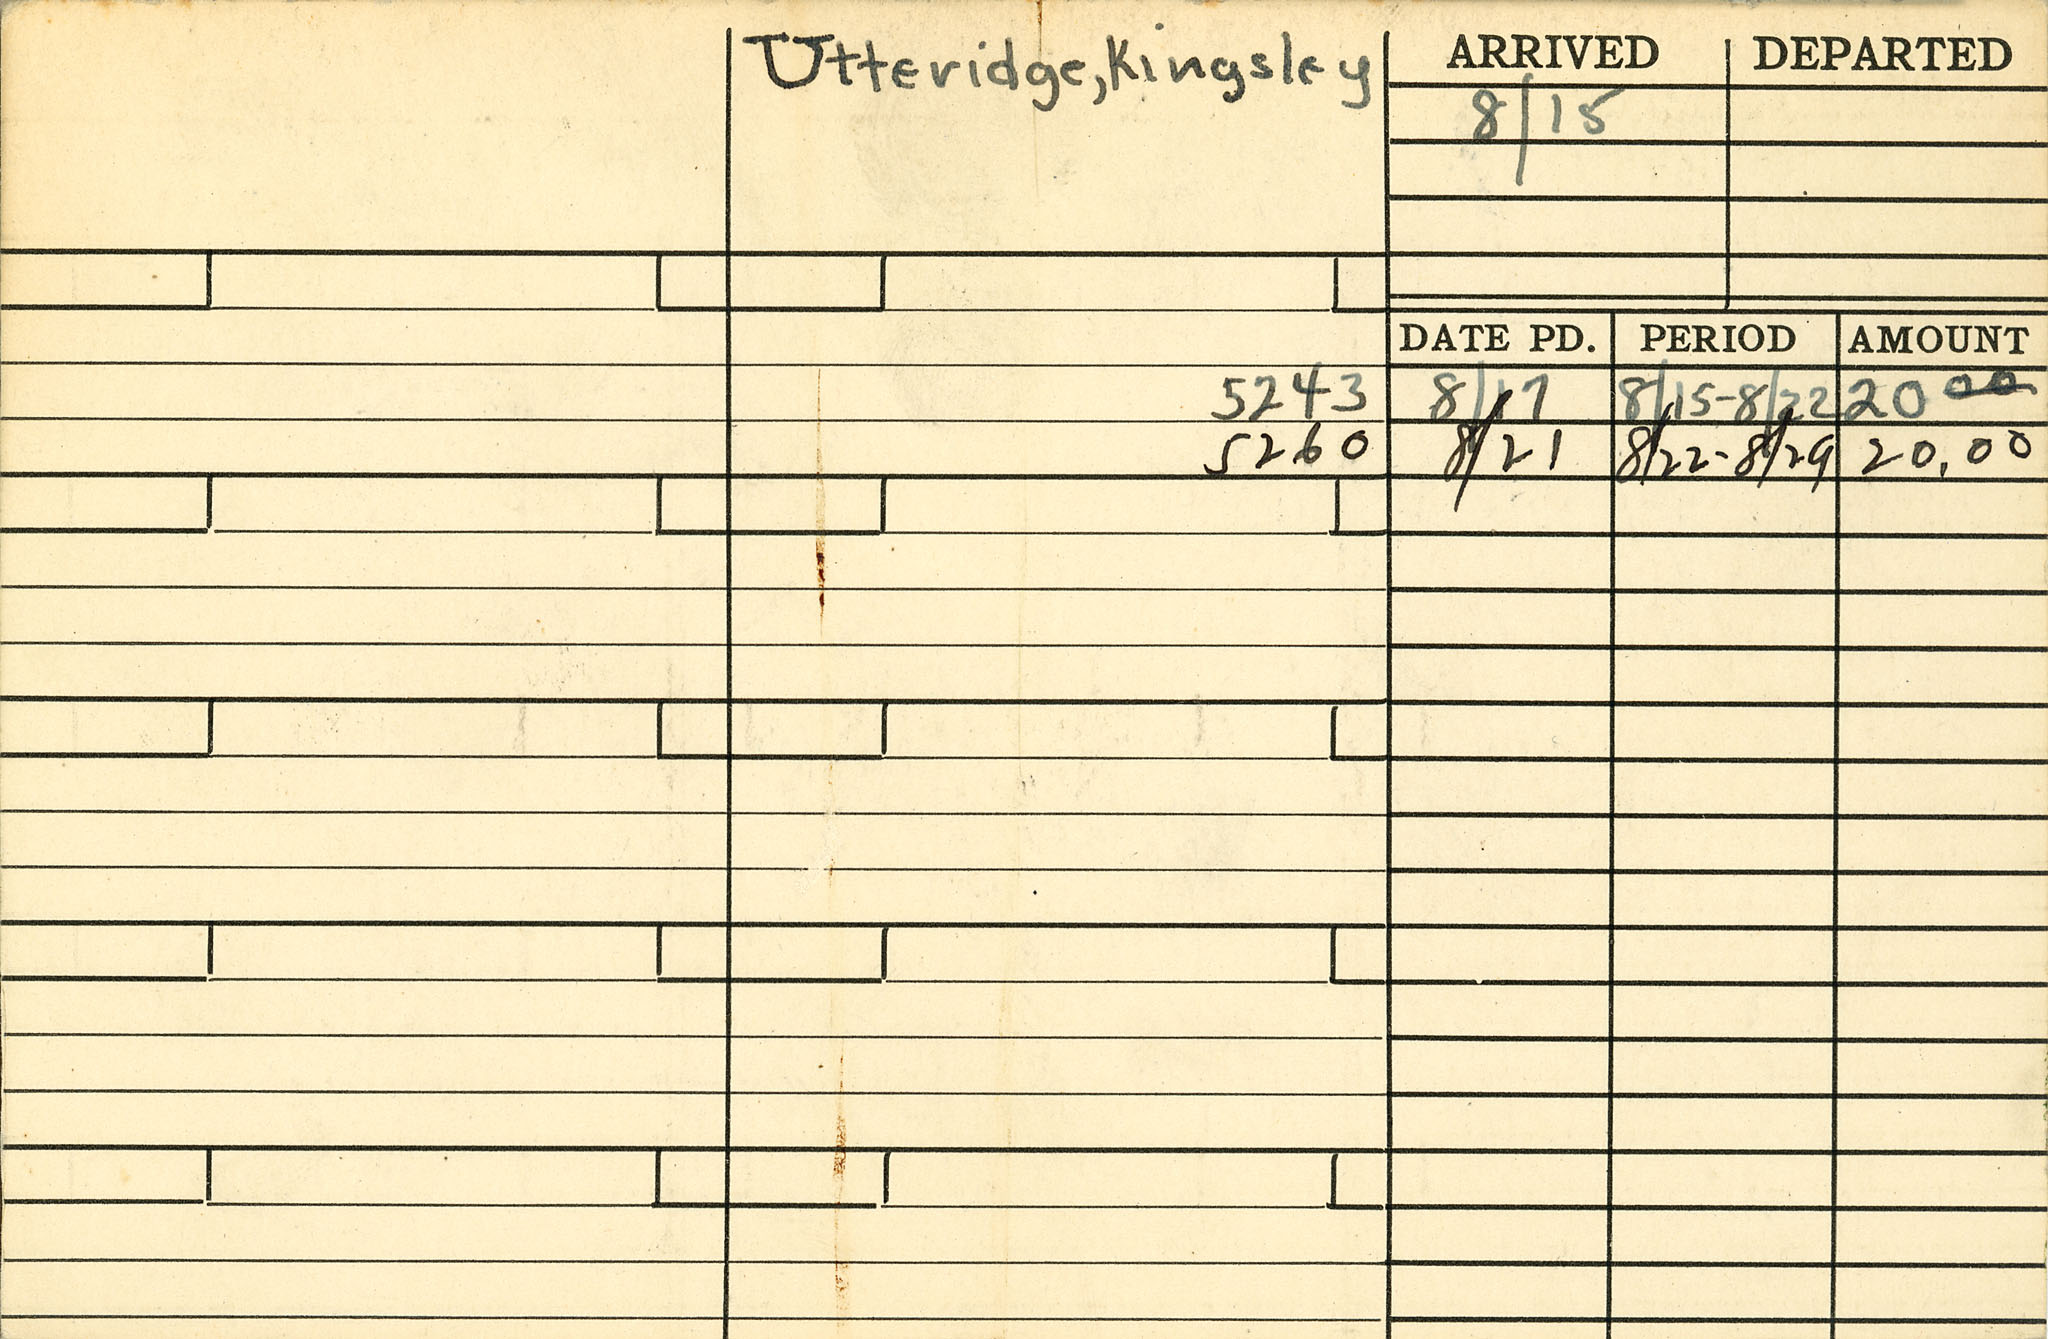 Utteridge, Kingsley
ARRIVED DEPARTED
8/15
DATE PD. PERIOD AMOUNT
5243 8/17 8/15-8/22 20 00
5260 8/21 8/22-8/29 20.00